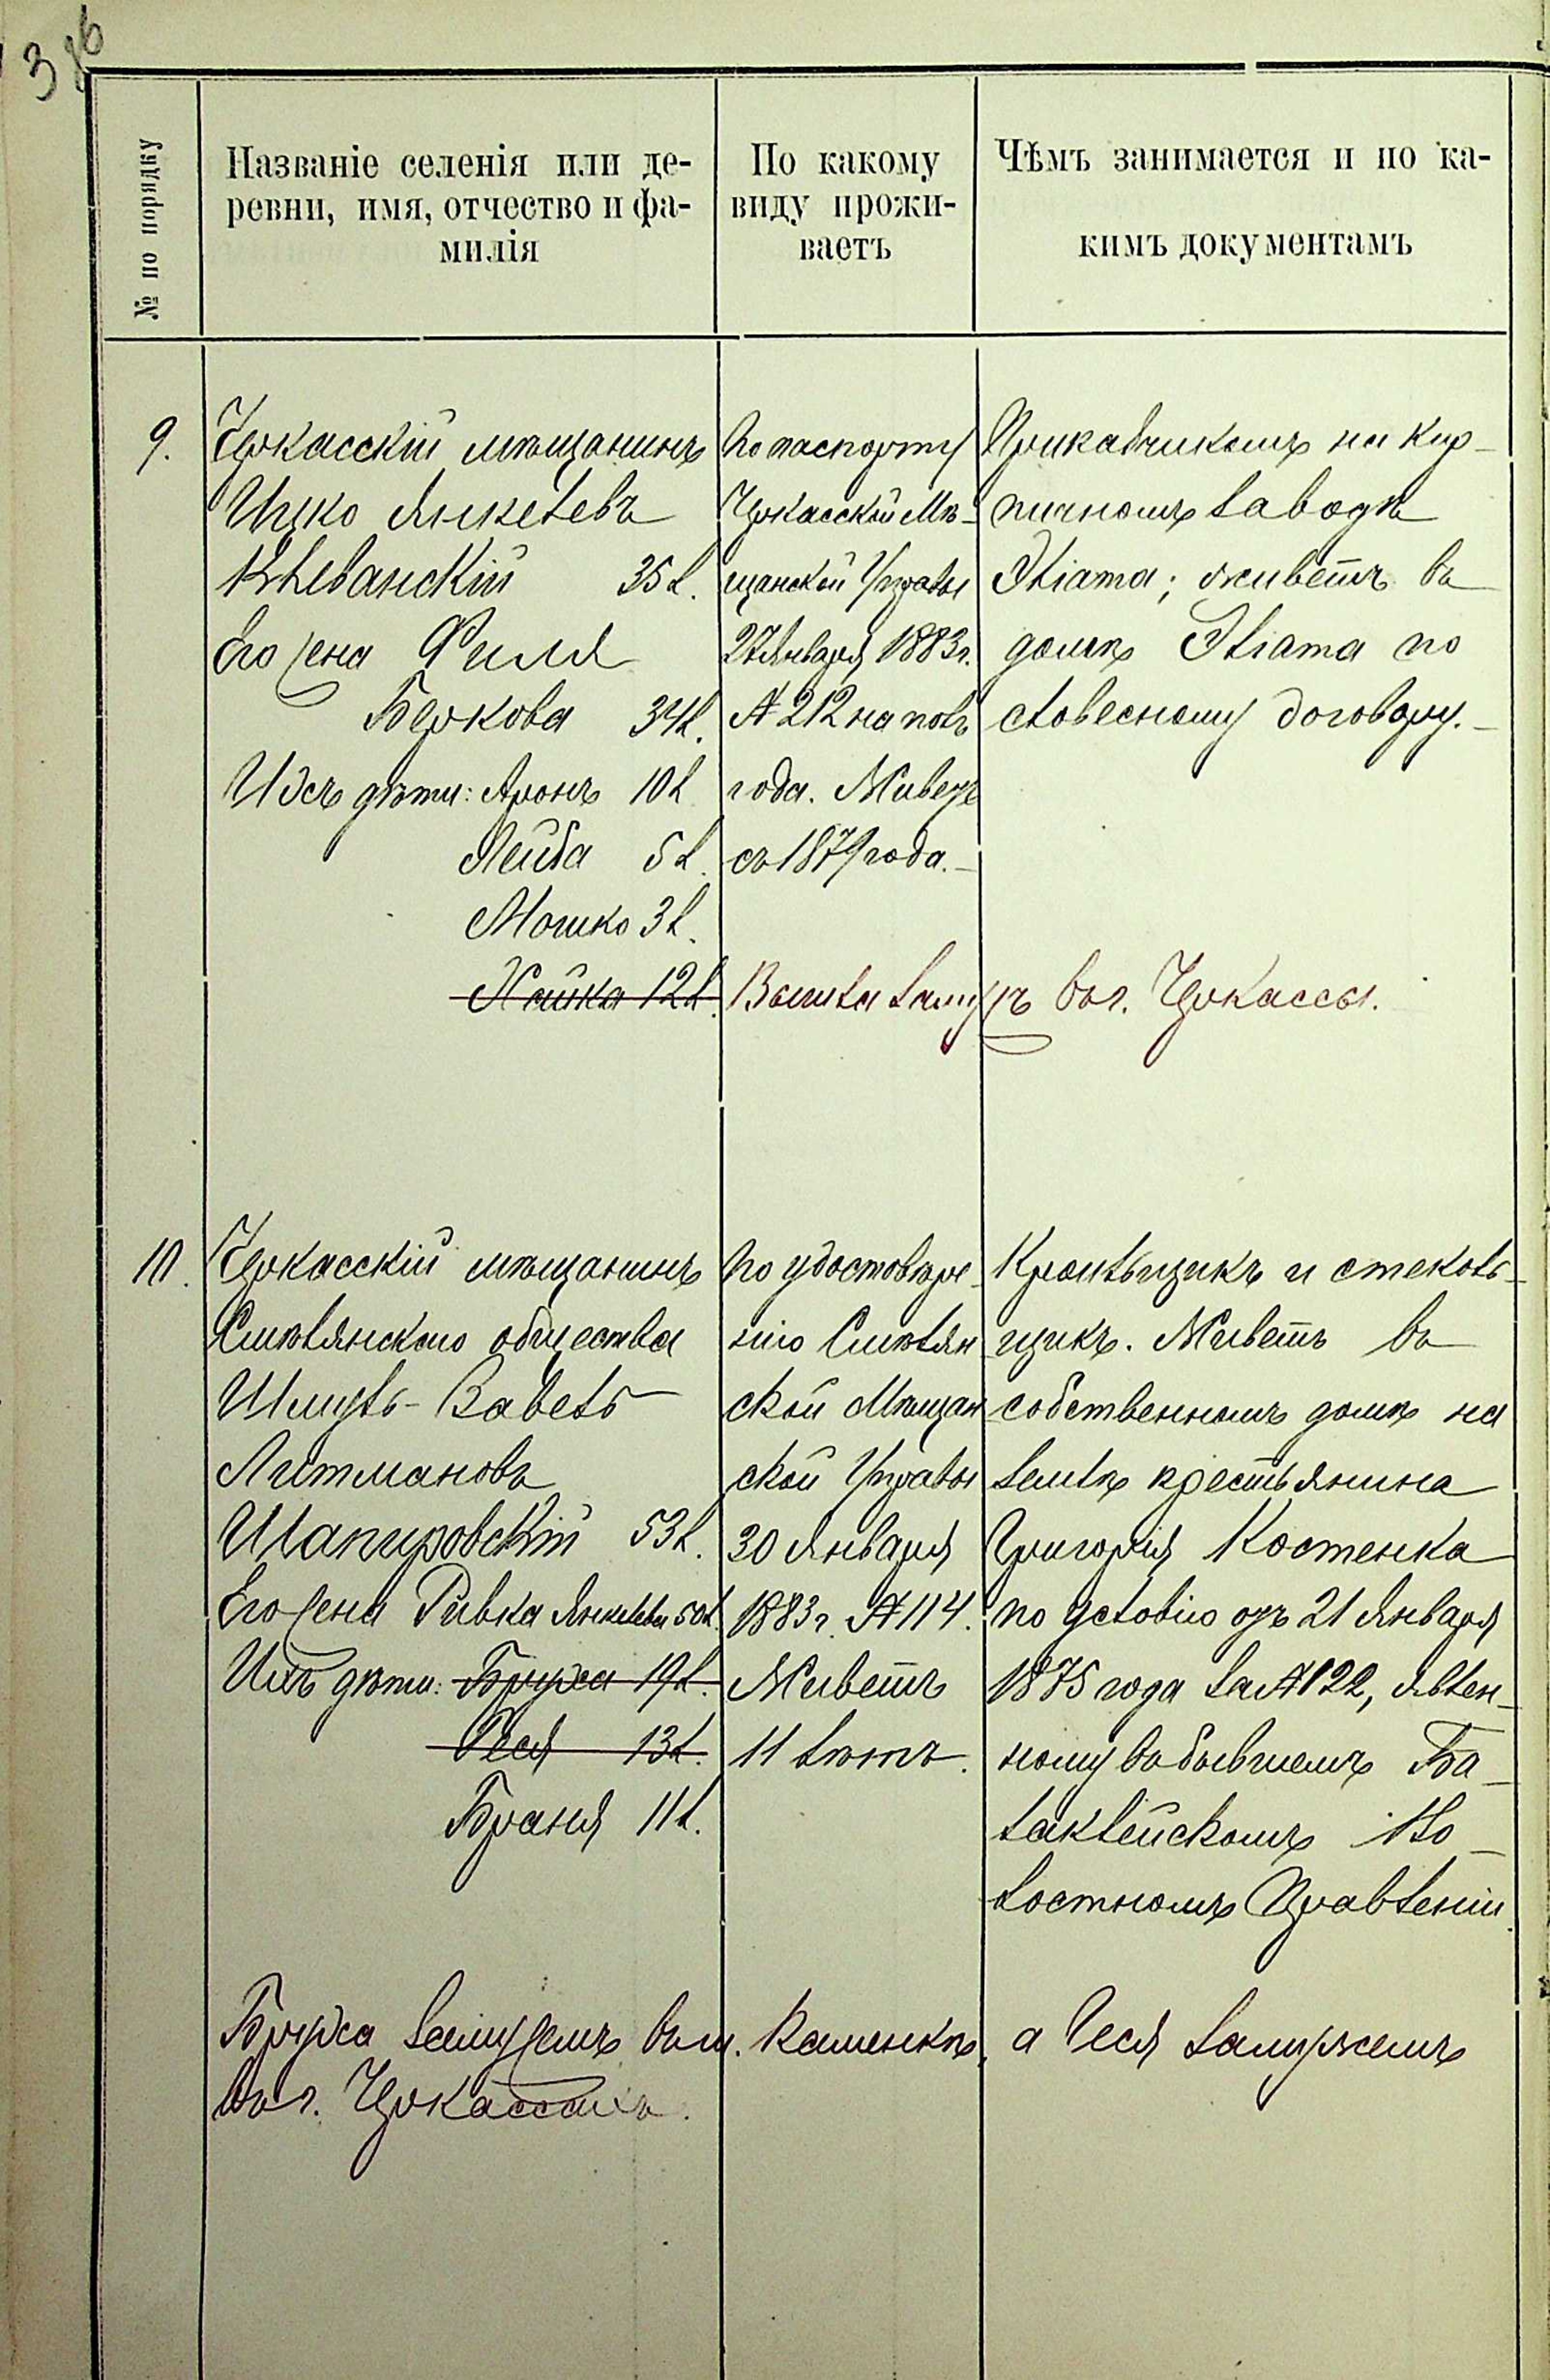 386
№ по порядку
Названіе селенія или де-
ревни, имя, отчество и фа-
милія
По какому
виду прожи-
ваетъ
Чѣмъ занимается и по ка-
кимъ документамъ
9.
Черкасскій мѣщанинъ
Ицко Янкелевъ
Клеванскій 35 л.
Его жена Фейля
Беркова 34 л.
Ихъ дѣти: Аронъ 10 л
Лейба 5 л.
Мошко 3 л.
Хайка 12 л.
По паспорту
Черкасской Мѣ-
щанской Управы
27 Января 1883 г.
№ 212 на полъ
года. Живетъ
съ 1879 года.
Прикащикомъ на кир-
пичномъ заводѣ
Жіата; живетъ въ
домѣ Жіата по
словесному договору.
Вышла замужъ въ г. Черкассы.
10.
Черкасскій мѣщанинъ
Смѣлянскаго общества
Шмуль-Вавель
Литмановъ
Шапировскій 53 л.
Его жена Ривка Янкелева 50 л.
Ихъ дѣти: Бруха 19 л.
Песя 13 л.
Браня 11 л.
По удостовѣре-
нію Смѣлян
ской Мѣщан
ской Управы
30 Января
1883 г. № 114.
Живетъ
11 лѣтъ.
Кровельщикъ и стеколь-
щикъ. Живетъ въ
собственномъ домѣ на
землѣ крестьянина
Григорія Костенка
по условію отъ 21 Января
1875 года за № 122, явлен-
ному въ бывшемъ Ба-
лаклейскомъ Во-
лостномъ Правленіи.
Бруха замужемъ въ м. Каменкѣ, а Песя замужемъ
въ г. Черкассахъ.